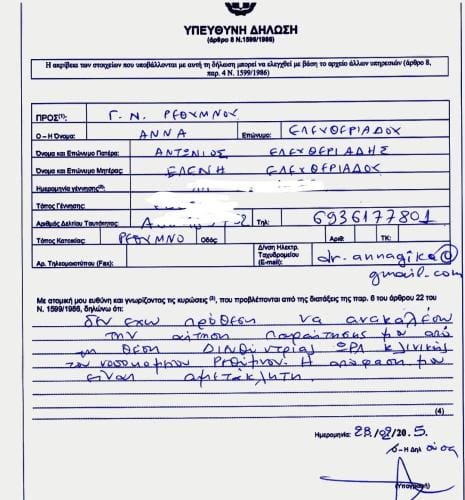 ΥΠΕΥΘΥΝΗ ΔΗΛΩΣΗ
(άρθρο 8 Ν.1599/1986)
Η ακρίβεια των στοιχείων που υποβάλλονται με αυτή τη δήλωση μπορεί να ελεγχθεί με βάση το αρχείο άλλων υπηρεσιών (άρθρο 8,
παρ. 4 Ν. 1599/1986)
ΠΡΟΣ(1): Γ. Ν. ΡΕΘΥΜΝΟΥ
Ο – Η Όνομα: ΑΝΝΑ Επώνυμο: ΕΛΕΥΘΕΡΙΑΔΟΥ
Όνομα και Επώνυμο Πατέρα: ΑΝΤΩΝΙΟΣ ΕΛΕΥΘΕΡΙΑΔΗΣ
Όνομα και Επώνυμο Μητέρας: ΕΛΕΝΗ ΕΛΕΥΘΕΡΙΑΔΟΥ
Ημερομηνία γέννησης(2):
Τόπος Γέννησης:
Αριθμός Δελτίου Ταυτότητας: Τηλ: 6936177801
Τόπος Κατοικίας: ΡΕΘΥΜΝΟ Οδός: Αριθ: ΤΚ:
Αρ. Τηλεομοιοτύπου (Fax): Δ/νση Ηλεκτρ. Ταχυδρομείου (Email): dr.annagika@
gmail.com
Με ατομική μου ευθύνη και γνωρίζοντας τις κυρώσεις (3), που προβλέπονται από της διατάξεις της παρ. 6 του άρθρου 22 του
Ν. 1599/1986, δηλώνω ότι:
δεν εχω πρόθεση να ανακαλέσω
την αίτηση παραίτησης μου από
τη θέση Διευθύντριας ΩΡΛ κλινικής
του νοσοκομείου Ρεθύμνου. Η απόφαση μου
είναι αμετάκλητη.
(4)
Ημερομηνία: 28/02/20.5.
Ο–Η Δηλ ούσα
(Υπογραφή)